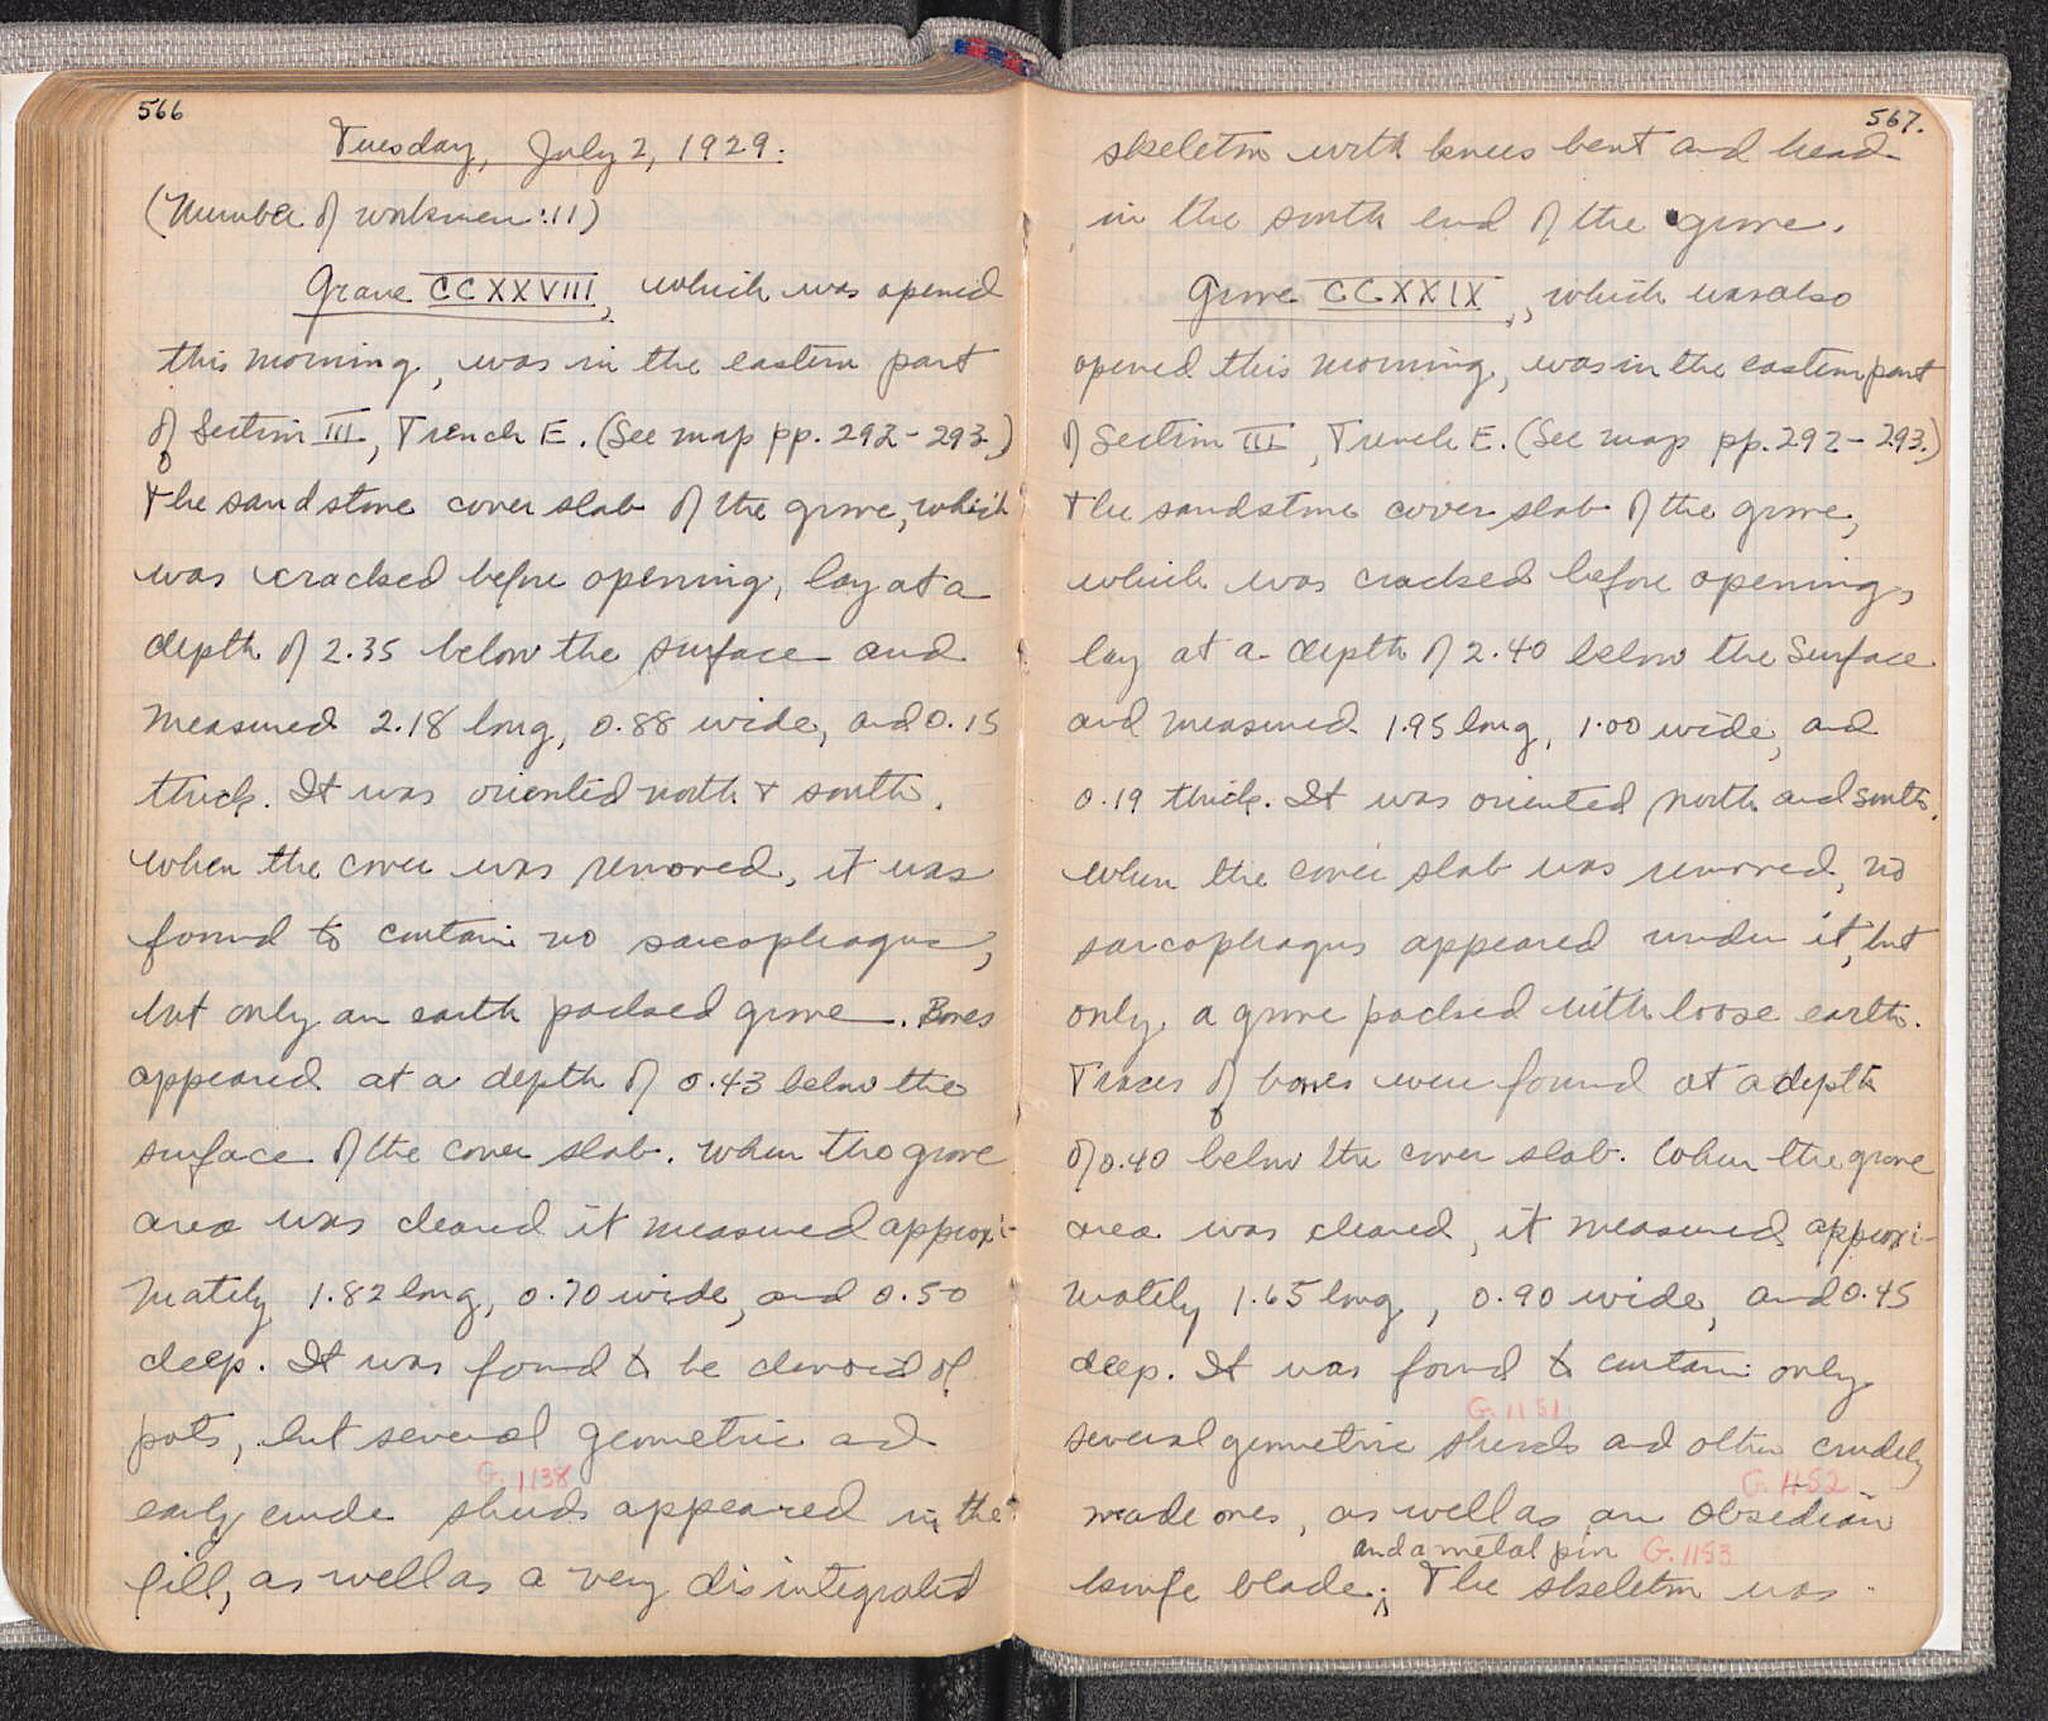 566
Tuesday, July 2, 1929.
(Number of workmen: 11)
Grave CCXXVIII, which was opened
this morning, was in the eastern part
of Section III, Trench E. (See map pp. 292-293.)
The sandstone cover slab of the grave, which
was cracked before opening, lay at a
depth of 2.35 below the surface and
measured 2.18 long, 0.88 wide, and 0.15
thick. It was oriented north & south.
When the cover was removed, it was
found to contain no sarcophagus,
but only an earth packed grave. Bones
appeared at a depth of 0.43 below the
surface of the cover slab. When the grave
area was cleared it measured approxi-
mately 1.82 long, 0.70 wide, and 0.50
deep. It was found to be devoid of
pots, but several geometric and
G. 1138
early crude sherds appeared in the
fill, as well as a very disintegrated
567.
skeleton with knees bent and head
in the south end of the grave.
Grave CCXXIX, which was also
opened this morning, was in the eastern part
of Section III, Trench E. (See map pp. 292-293.)
The sandstone cover slab of the grave,
which was cracked before opening,
lay at a depth of 2.40 below the surface
and measured 1.95 long, 1.00 wide, and
0.19 thick. It was oriented north and south.
When the cover slab was removed, no
sarcophagus appeared under it, but
only a grave packed with loose earth.
Traces of bones were found at a depth
of 0.40 below the cover slab. When the grave
area was cleared, it measured approxi-
mately 1.65 long, 0.90 wide, and 0.45
deep. It was found to contain only
G. 1151
several geometric sherds and other crudely
G. 1152
made ones, as well as an obsedian
and a metal pin G. 1153
knife blade; The skeleton was